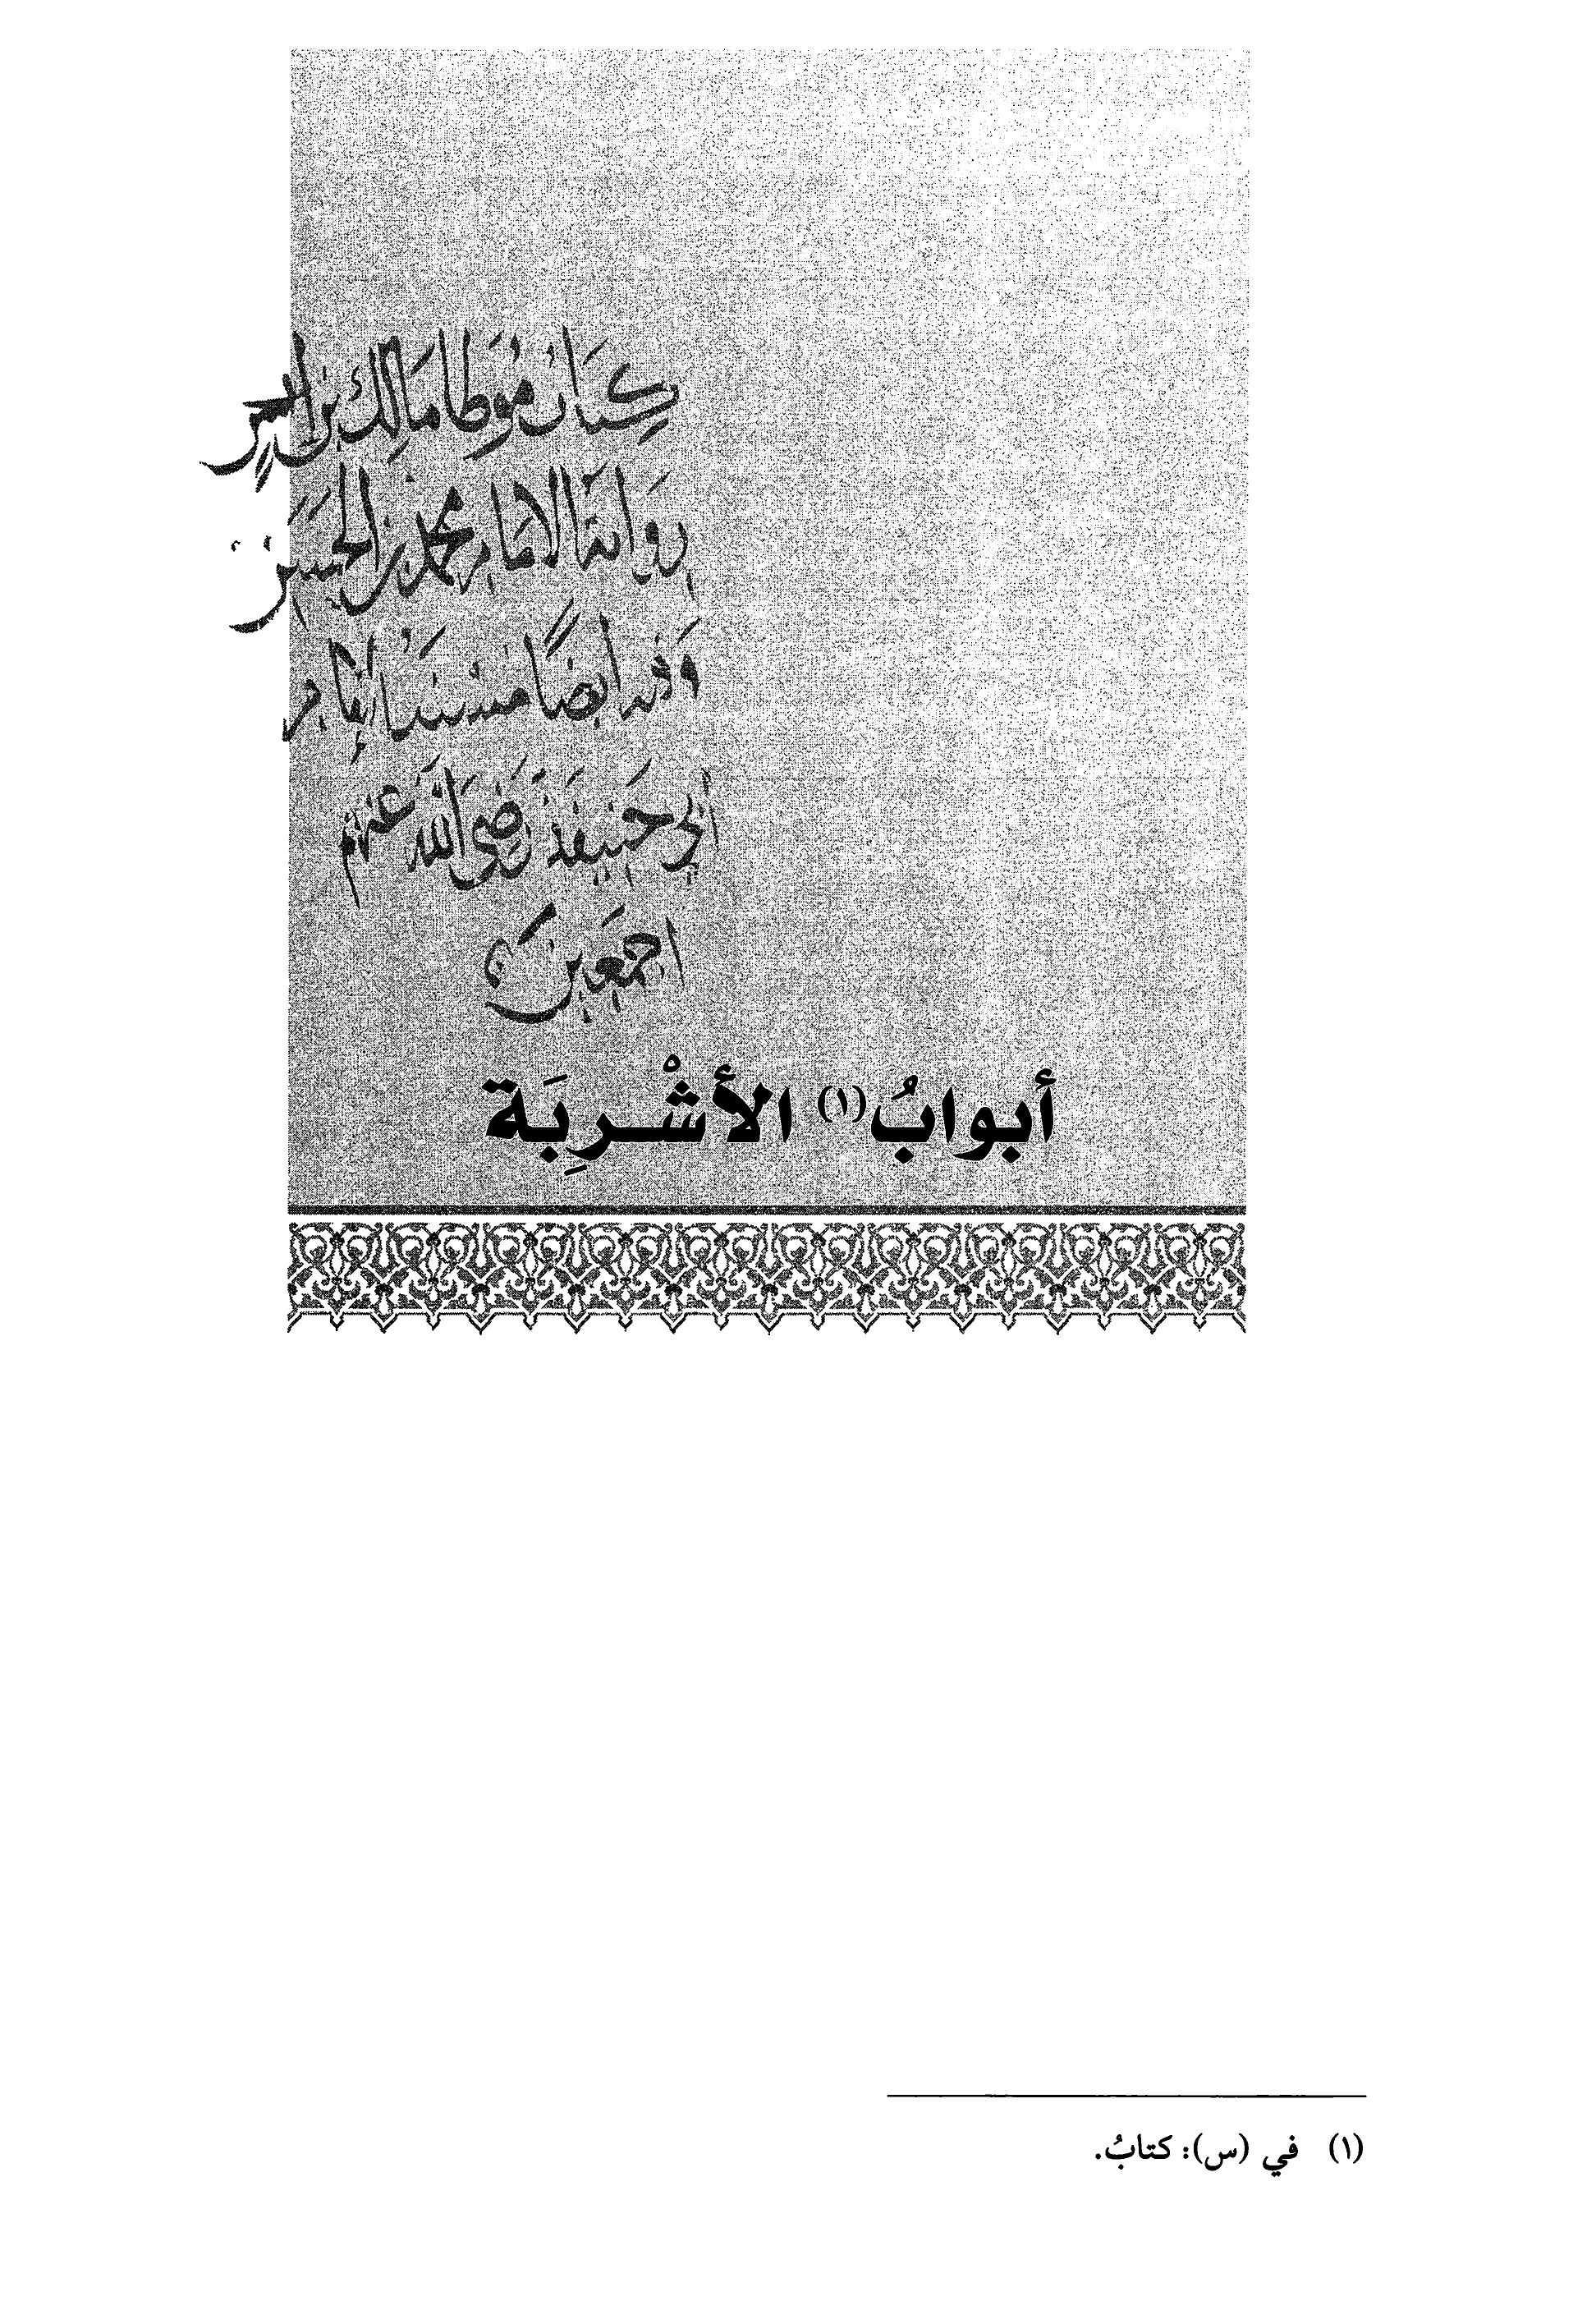 كِتَابُ مُوَطا مَالِك بن
رِوَاية الامَام محمد بن الحَسَن
وَفيه ايضًا مُسْنَدُ الإمَام
أبي حَنِيفَة رَضِيَ اللَّه عَنهم
اجمَعِين
أبوابُ(١) الأشْرِبَة
(١) في (س): كتابُ.